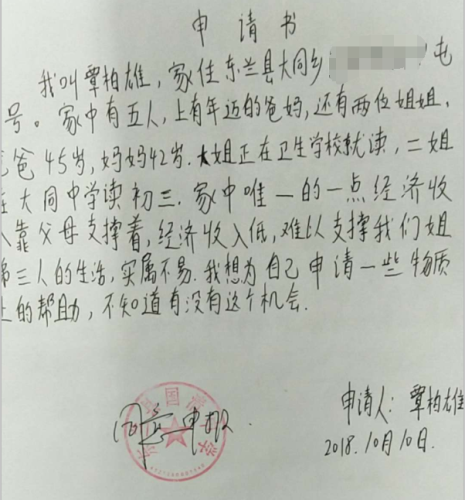 申请书
我叫覃柏雄，家住东兰县大同乡屯
号。家中有五人，上有年迈的爸妈，还有两位姐姐，
爸45岁，妈妈42岁．大姐正在卫生学校就读，二姐
在大同中学读初三．家中唯一的一点经济收
入靠父母支撑着，经济收入低，难以支撑我们姐
弟三人的生活，实属不易．我想为自己申请一些物质
上的帮助，不知道有没有这个机会．
同意申报
申请人：覃柏雄
2018.10月10日．